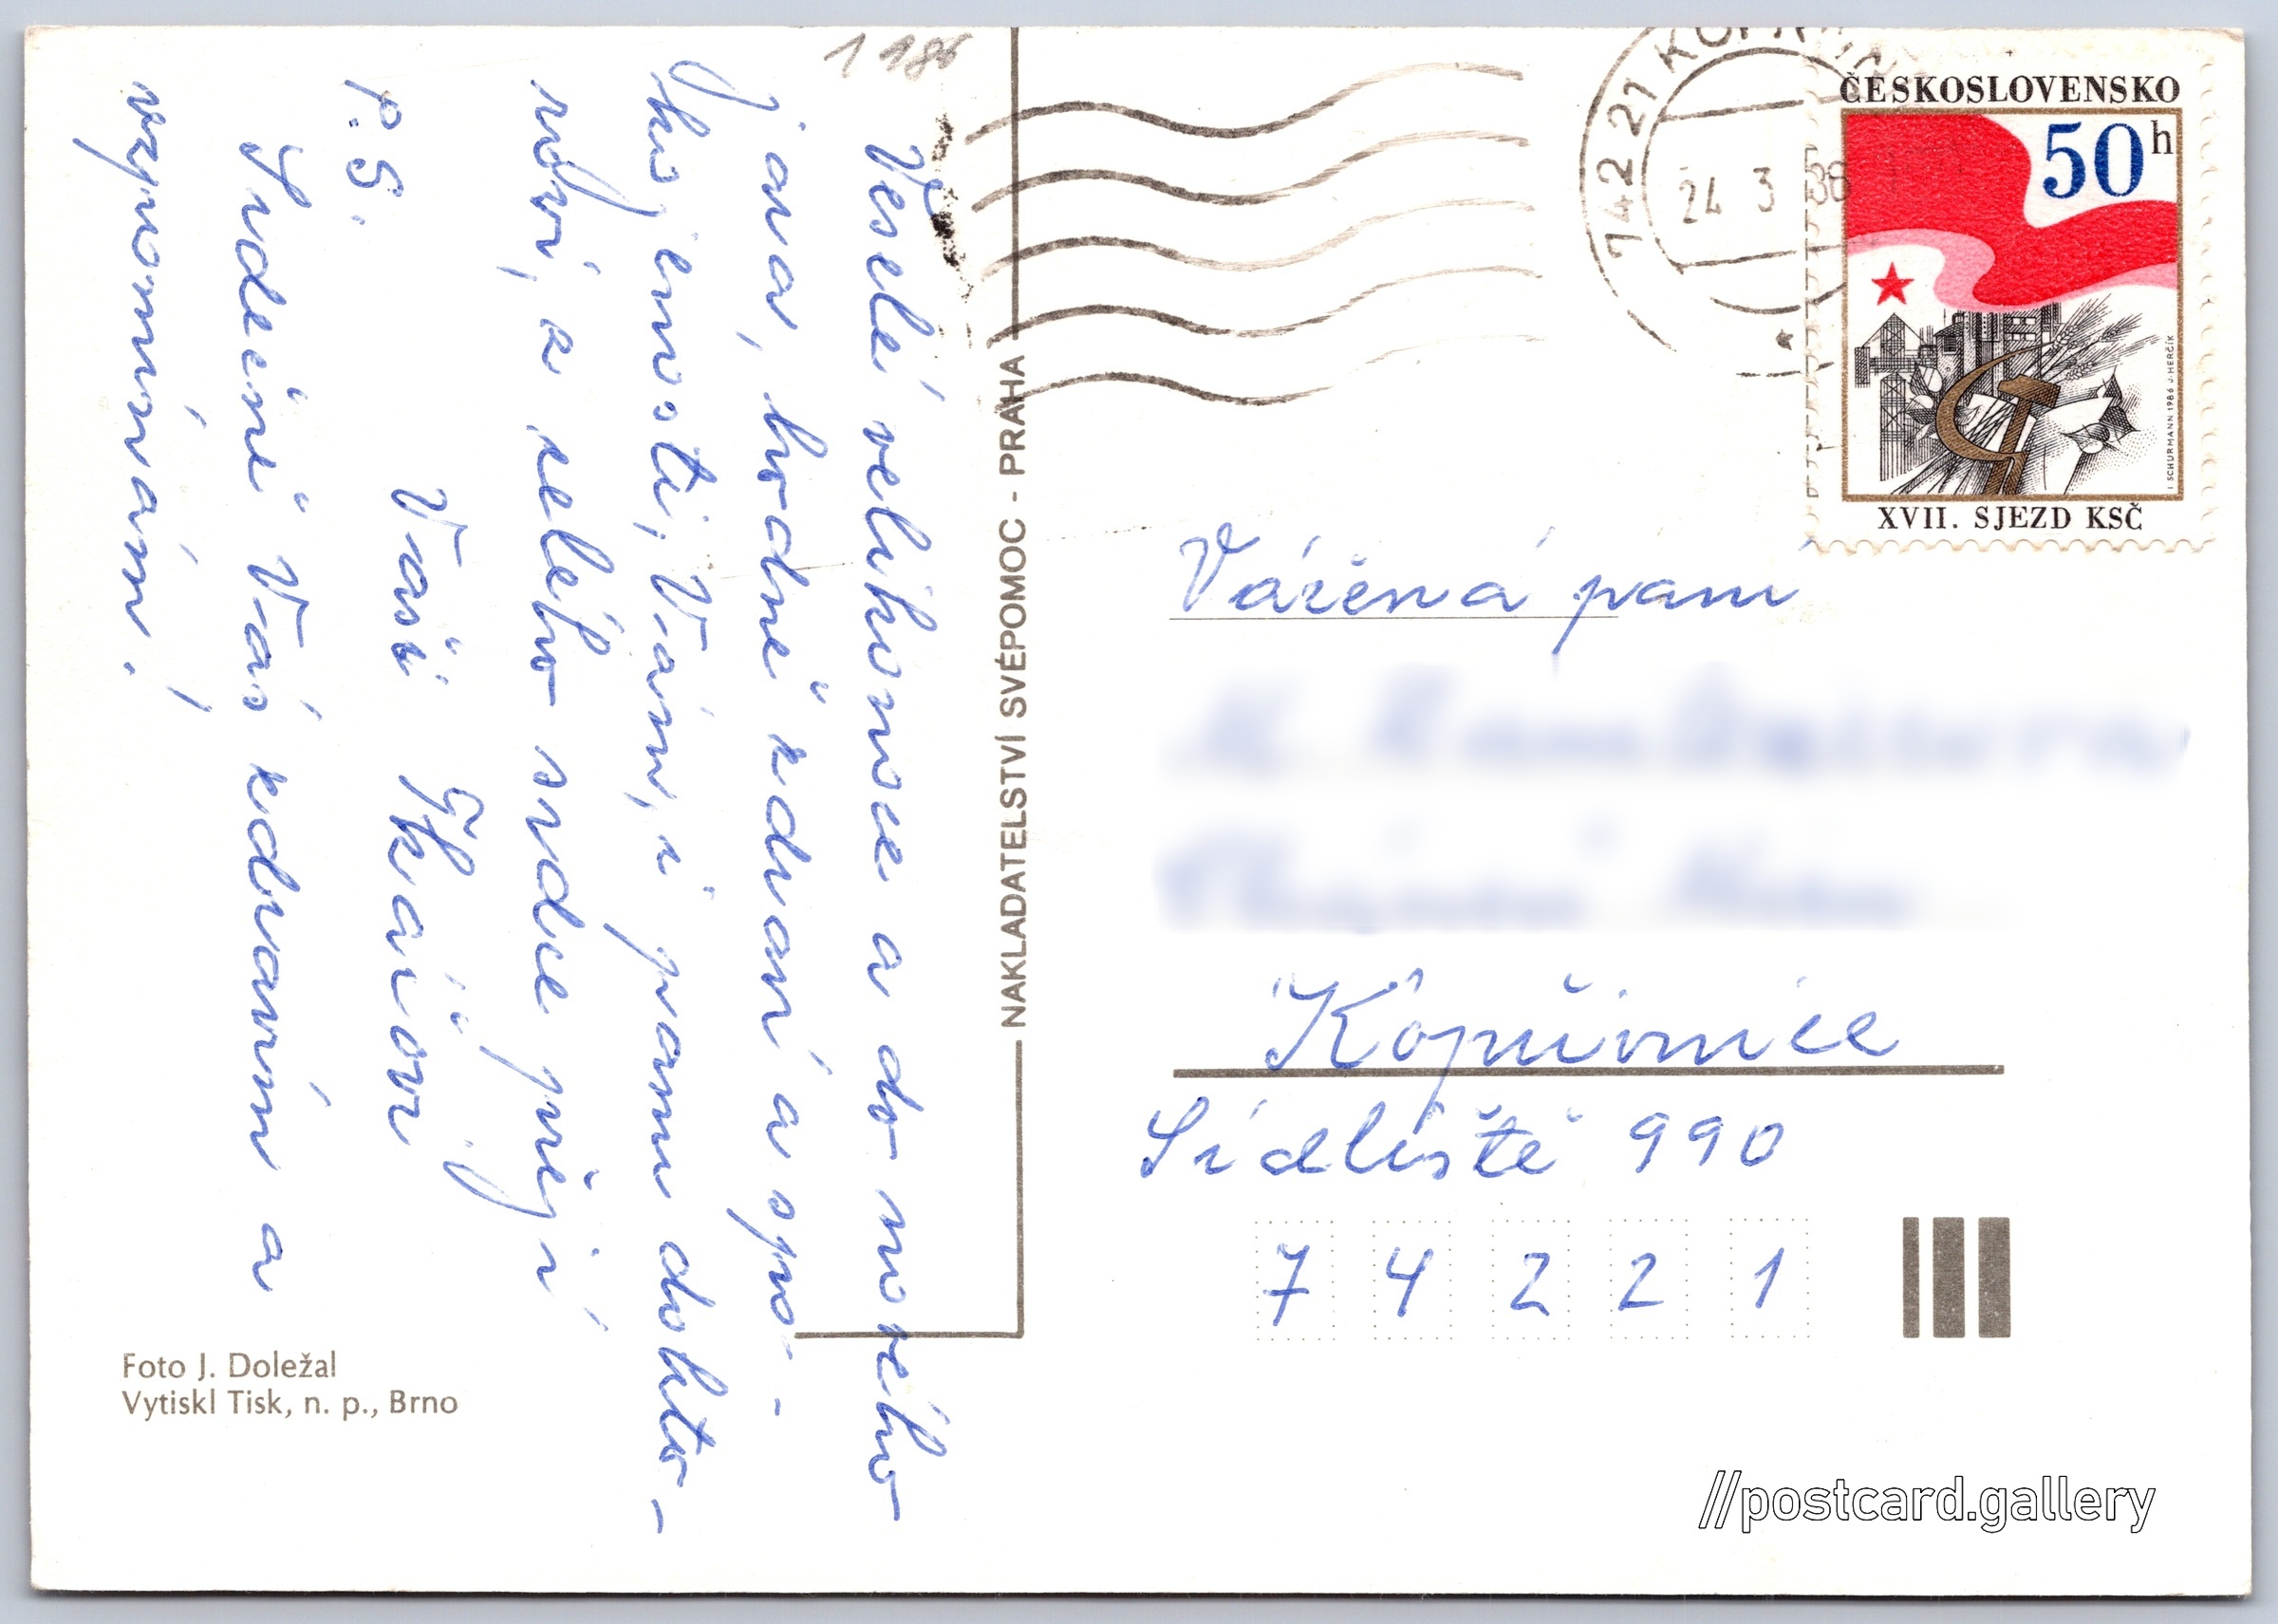 1986
Veselé velikonoce a do nového
jara, hodně zdraví a spo-
kojenosti, Vám, i panu dokto-
rovi, z celého srdce přejí
Vaši Tkáčovi
P.S.
Srdečně Vás zdravím a
vzpomínám.
Foto J. Doležal
Vytiskl Tisk, n. p., Brno
NAKLADATELSTVÍ SVÉPOMOC - PRAHA
742 21 KOPŘIVN
24 3 86
ČESKOSLOVENSKO
50h
I. SCHURMANN 1986 J. HERČÍK
XVII. SJEZD KSČ
Vážená paní
Kopřivnice
Sídliště 990
7 4 2 2 1
//postcard.gallery